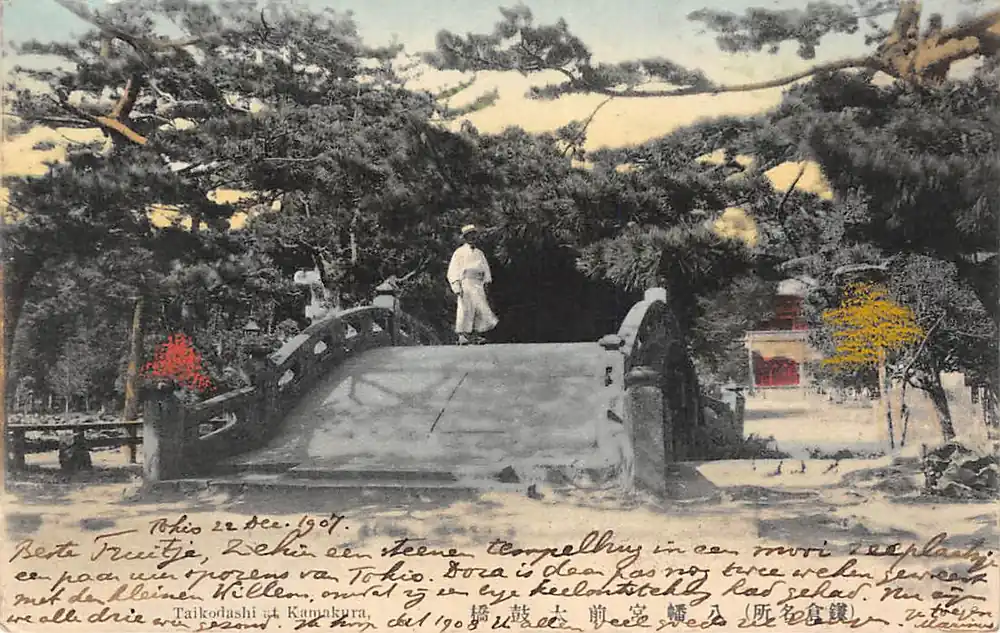 Tokio 22 Dec. 1907.
Beste Truitje, Zie hier een steenen tempelbrug in een mooi zeeplaatsje
een paar uur sporens van Tokio. Dora is daar pas nog twee weken geweest
met den kleinen Willem, omdat zij een keelontsteking had gehad. Nu zijn
we alle drie weer gezond. Ik hoop dat 1908 U allen veel goeds
Taikodashi at Kamakura,
(鎌倉名所) 八幡宮前太鼓橋